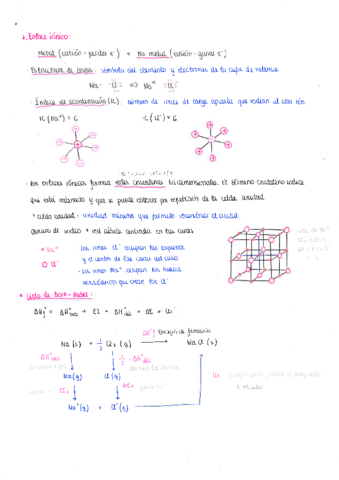 1. Enlace iónico:
Metal (catión - pierde e⁻) + No metal (anión - gana e⁻)
· Estructura de Lewis: símbolo del elemento y electrones de la capa de valencia
Na· ·Cl: ⟹ Na⁺ :Cl:⁻
· Índice de coordinación (IC): número de iones de carga opuesta que rodean al otro ión.
IC (Na⁺) = 6 IC (Cl⁻) = 6
· Los enlaces iónicos forman redes cristalinas tridimensionales. El término cristalino indica
que está ordenado y que se puede obtener por repetición de la celda unidad.
* Celda unidad: unidad mínima que permite reconstruir el cristal
Cloruro de sodio → red cúbica centrada en las caras
Na⁺
Cl⁻
- Los iones Cl⁻ ocupan los vértices
y el centro de las caras del cubo
- Los iones Na⁺ ocupan los huecos
octaédricos que crean los Cl⁻
* Ciclo de Born-Haber:
ΔHf° = ΔH°sub + EI + ΔH°dis + AE + U
ΔHf° Energía de formación
Na (s) + 1/2 Cl₂ (g) → NaCl (s)
ΔH°sub
1/2 ΔH°dis
Na (g) Cl (g)
AE
Na⁺ (g) + Cl⁻ (g)
U: